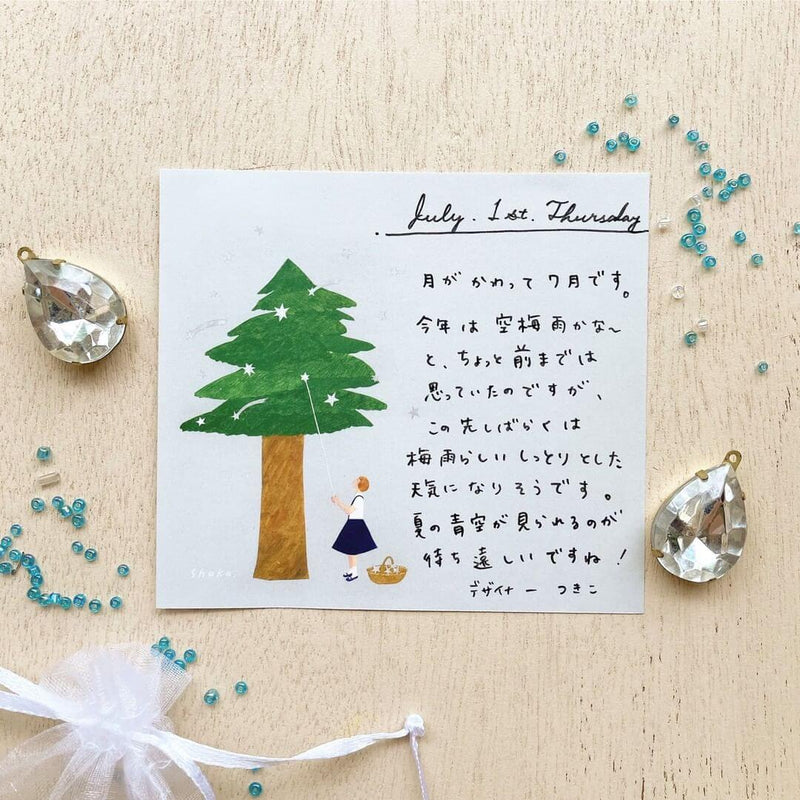 July. 1st. Thursday
月がかわって7月です。
今年は空梅雨かな〜
と、ちょっと前までは
思っていたのですが、
この先しばらくは
梅雨らしいしっとりとした
天気になりそうです。
夏の青空が見られるのが
待ち遠しいですね!
デザイナー つきこ
shoko.